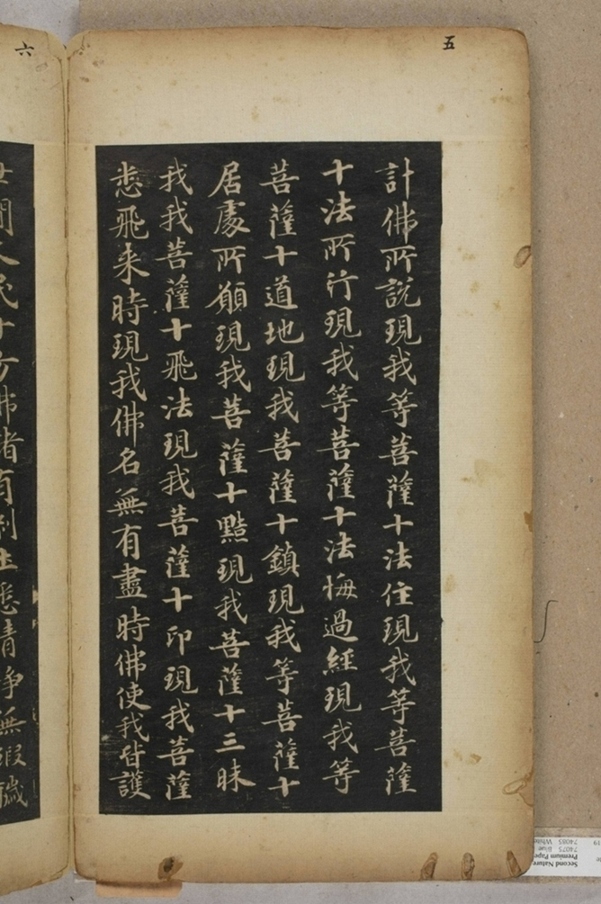 五
計佛所說現我等菩薩十法住現我等菩薩
十法所行現我等菩薩十法悔過經現我等
菩薩十道地現我菩薩十鎮現我等菩薩十
居處所願現我菩薩十黠現我菩薩十三昧
我我菩薩十飛法現我菩薩十印現我菩薩
悉飛来時現我佛名無有盡時佛使我皆護
六
方佛諸有剎土悉清淨無瑕穢
Second Nature
Premium Paper
74075 Blue
74085 White
19